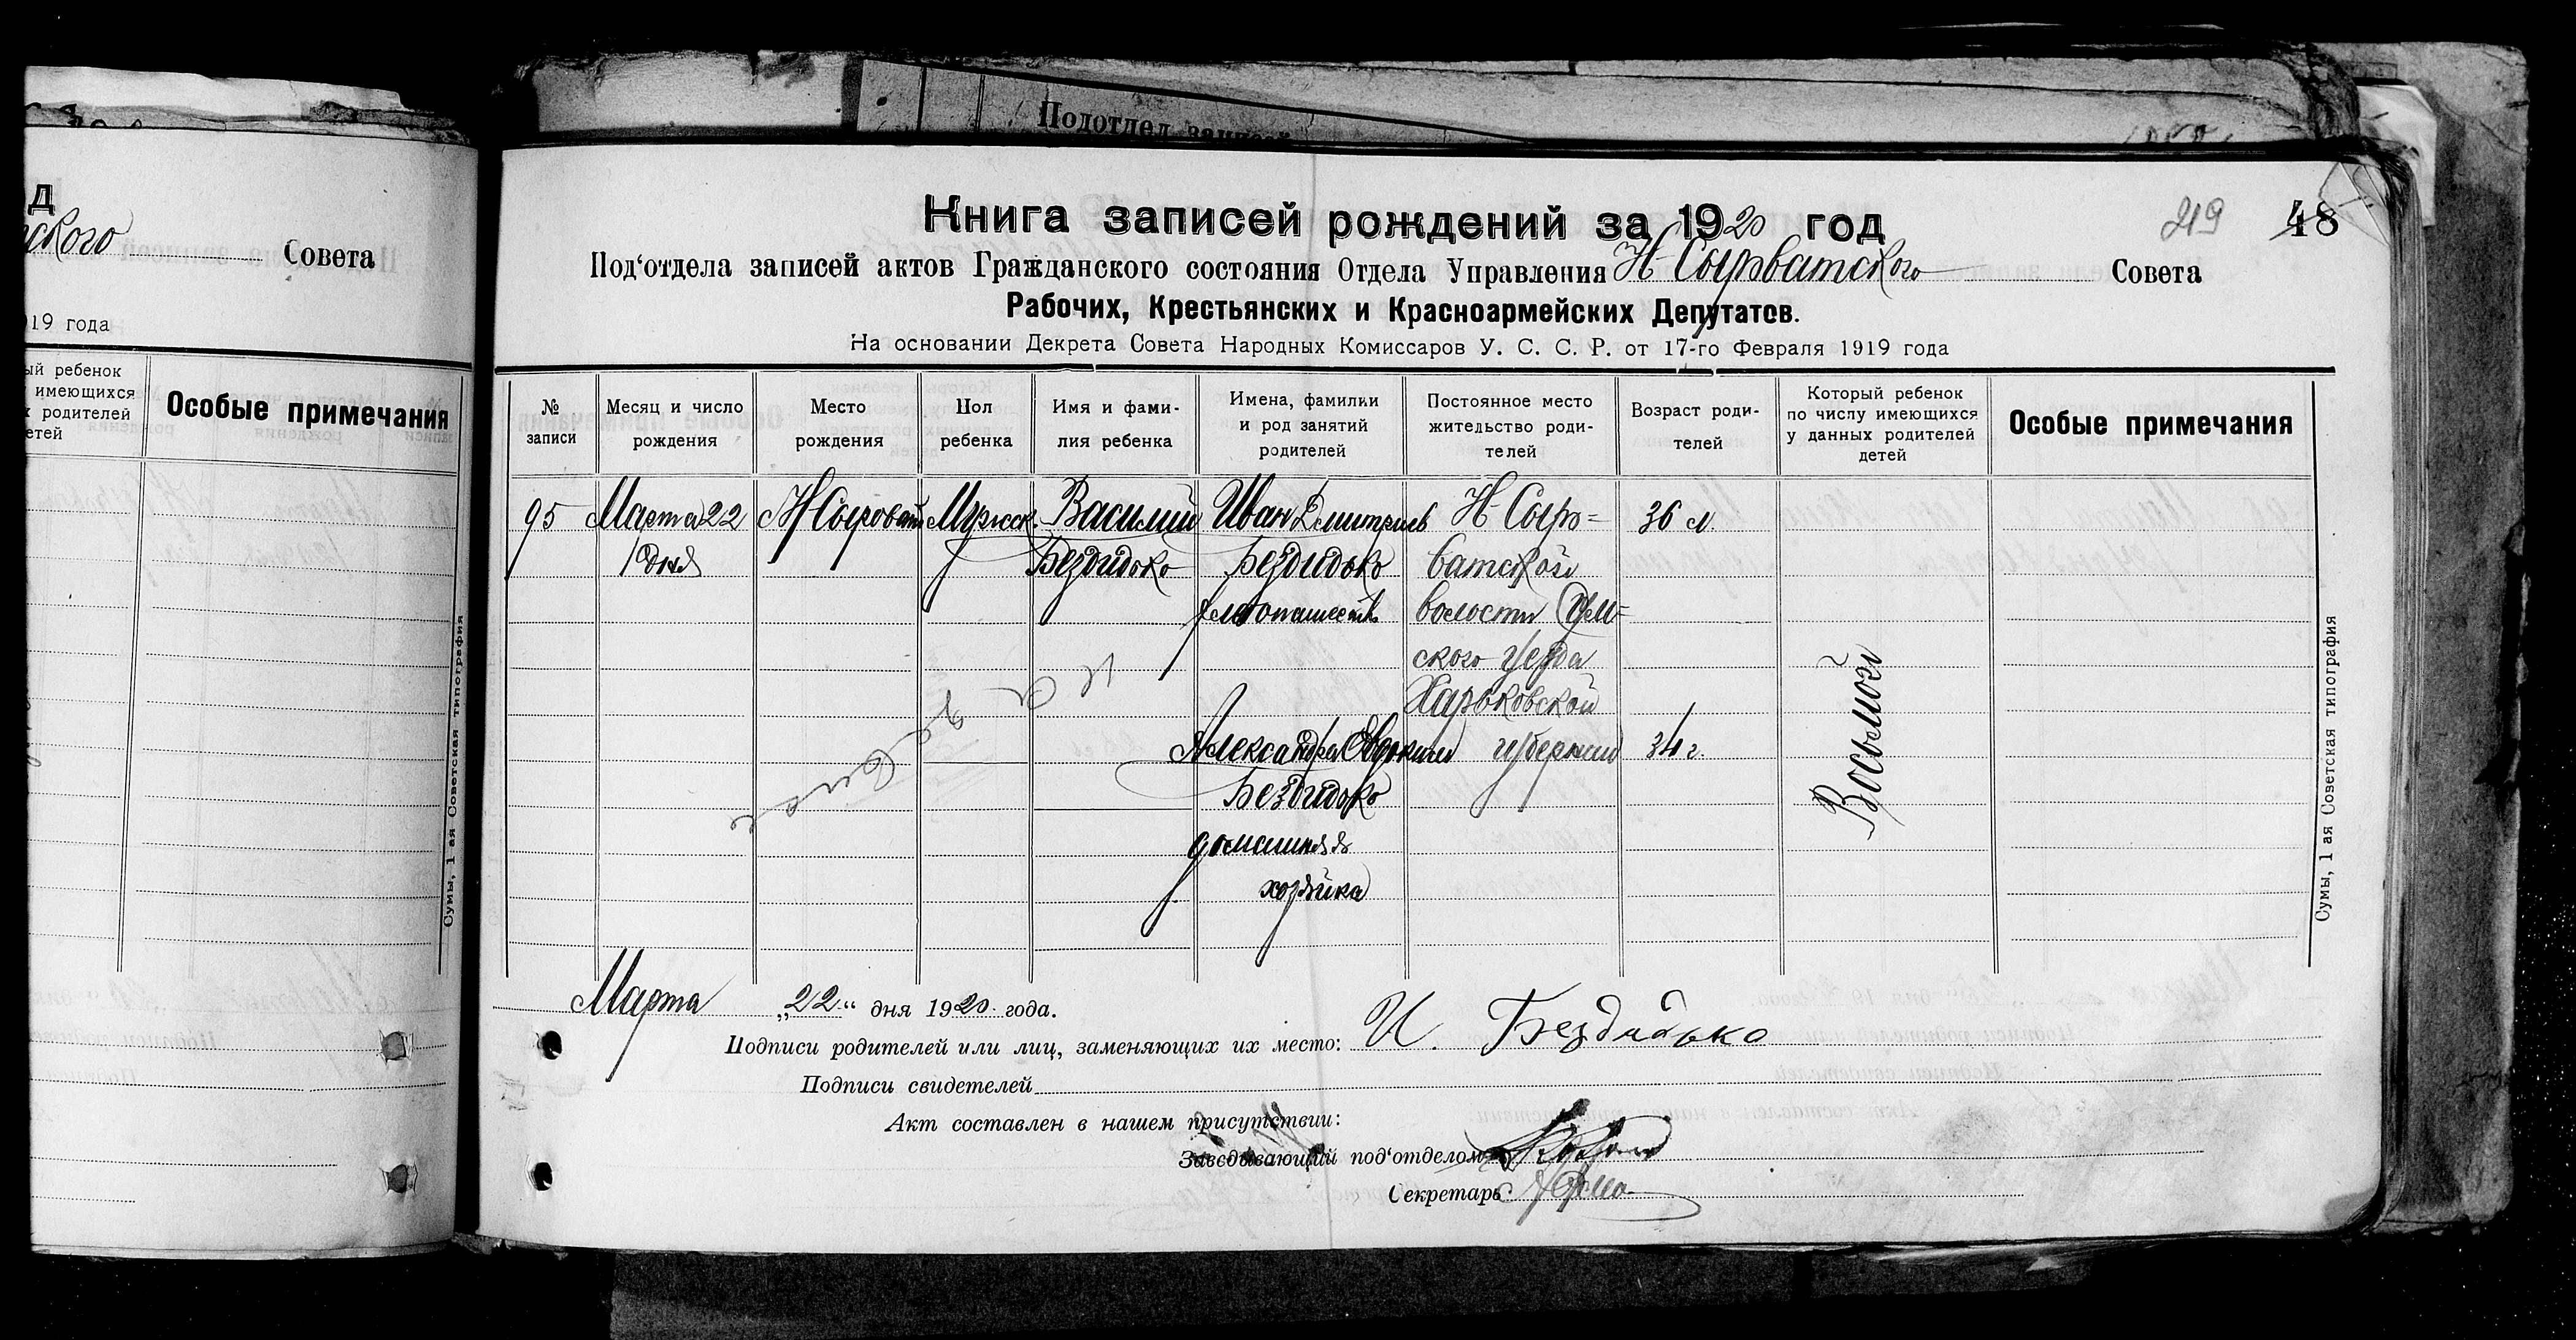 Подотдел записей
д
ского Совета
19 года
ый ребенок
имеющихся
х родителей
етей
Особые примечания
Сумы, 1 ая Советская типография
219 48
Книга записей рождений за 1920 год
Под'отдела записей актов Гражданского состояния Отдела Управления Н-Сыроватского Совета
Рабочих, Крестьянских и Красноармейских Депутатов.
На основании Декрета Совета Народных Комиссаров У. С. С. Р. от 17-го Февраля 1919 года
№ записи
Месяц и число рождения
Место рождения
Пол ребенка
Имя и фами- лия ребенка
Имена, фамилии и род занятий родителей
Постоянное место жительство роди- телей
Возраст роди- телей
Который ребенок по числу имеющихся у данных родителей детей
Особые примечания
95 Марта 22 Н Сыроват Мужск. Василий Иван Дмитриев Н-Сыро= 36 л.
дня Бездидько Бездидько ватской
волости Сум=
ского уезда
Харьковской
Александра губернии 34 г.
Бездидько
домашняя
хозяйка
Восьмой
Марта „22“ дня 1920 года.
Подписи родителей или лиц, заменяющих их место: И. Бездидько
Подписи свидетелей
Акт составлен в нашем присутствии:
Заведывающий под'отделом
Секретарь
Сумы, 1 ая Советская типография